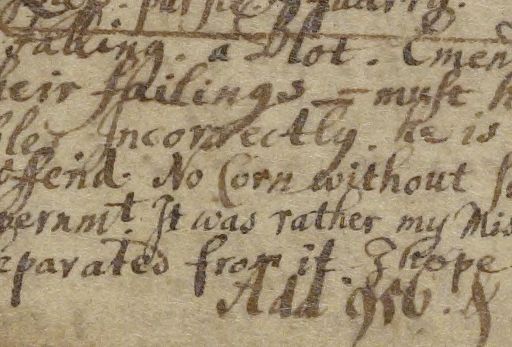 falling. a Blot. Emen
heir ffailings = must h
Incorrectly. he is
ffend. No Corn without
vernmt. It was rather my Mis
eparates from it. I hope
Add 956. &